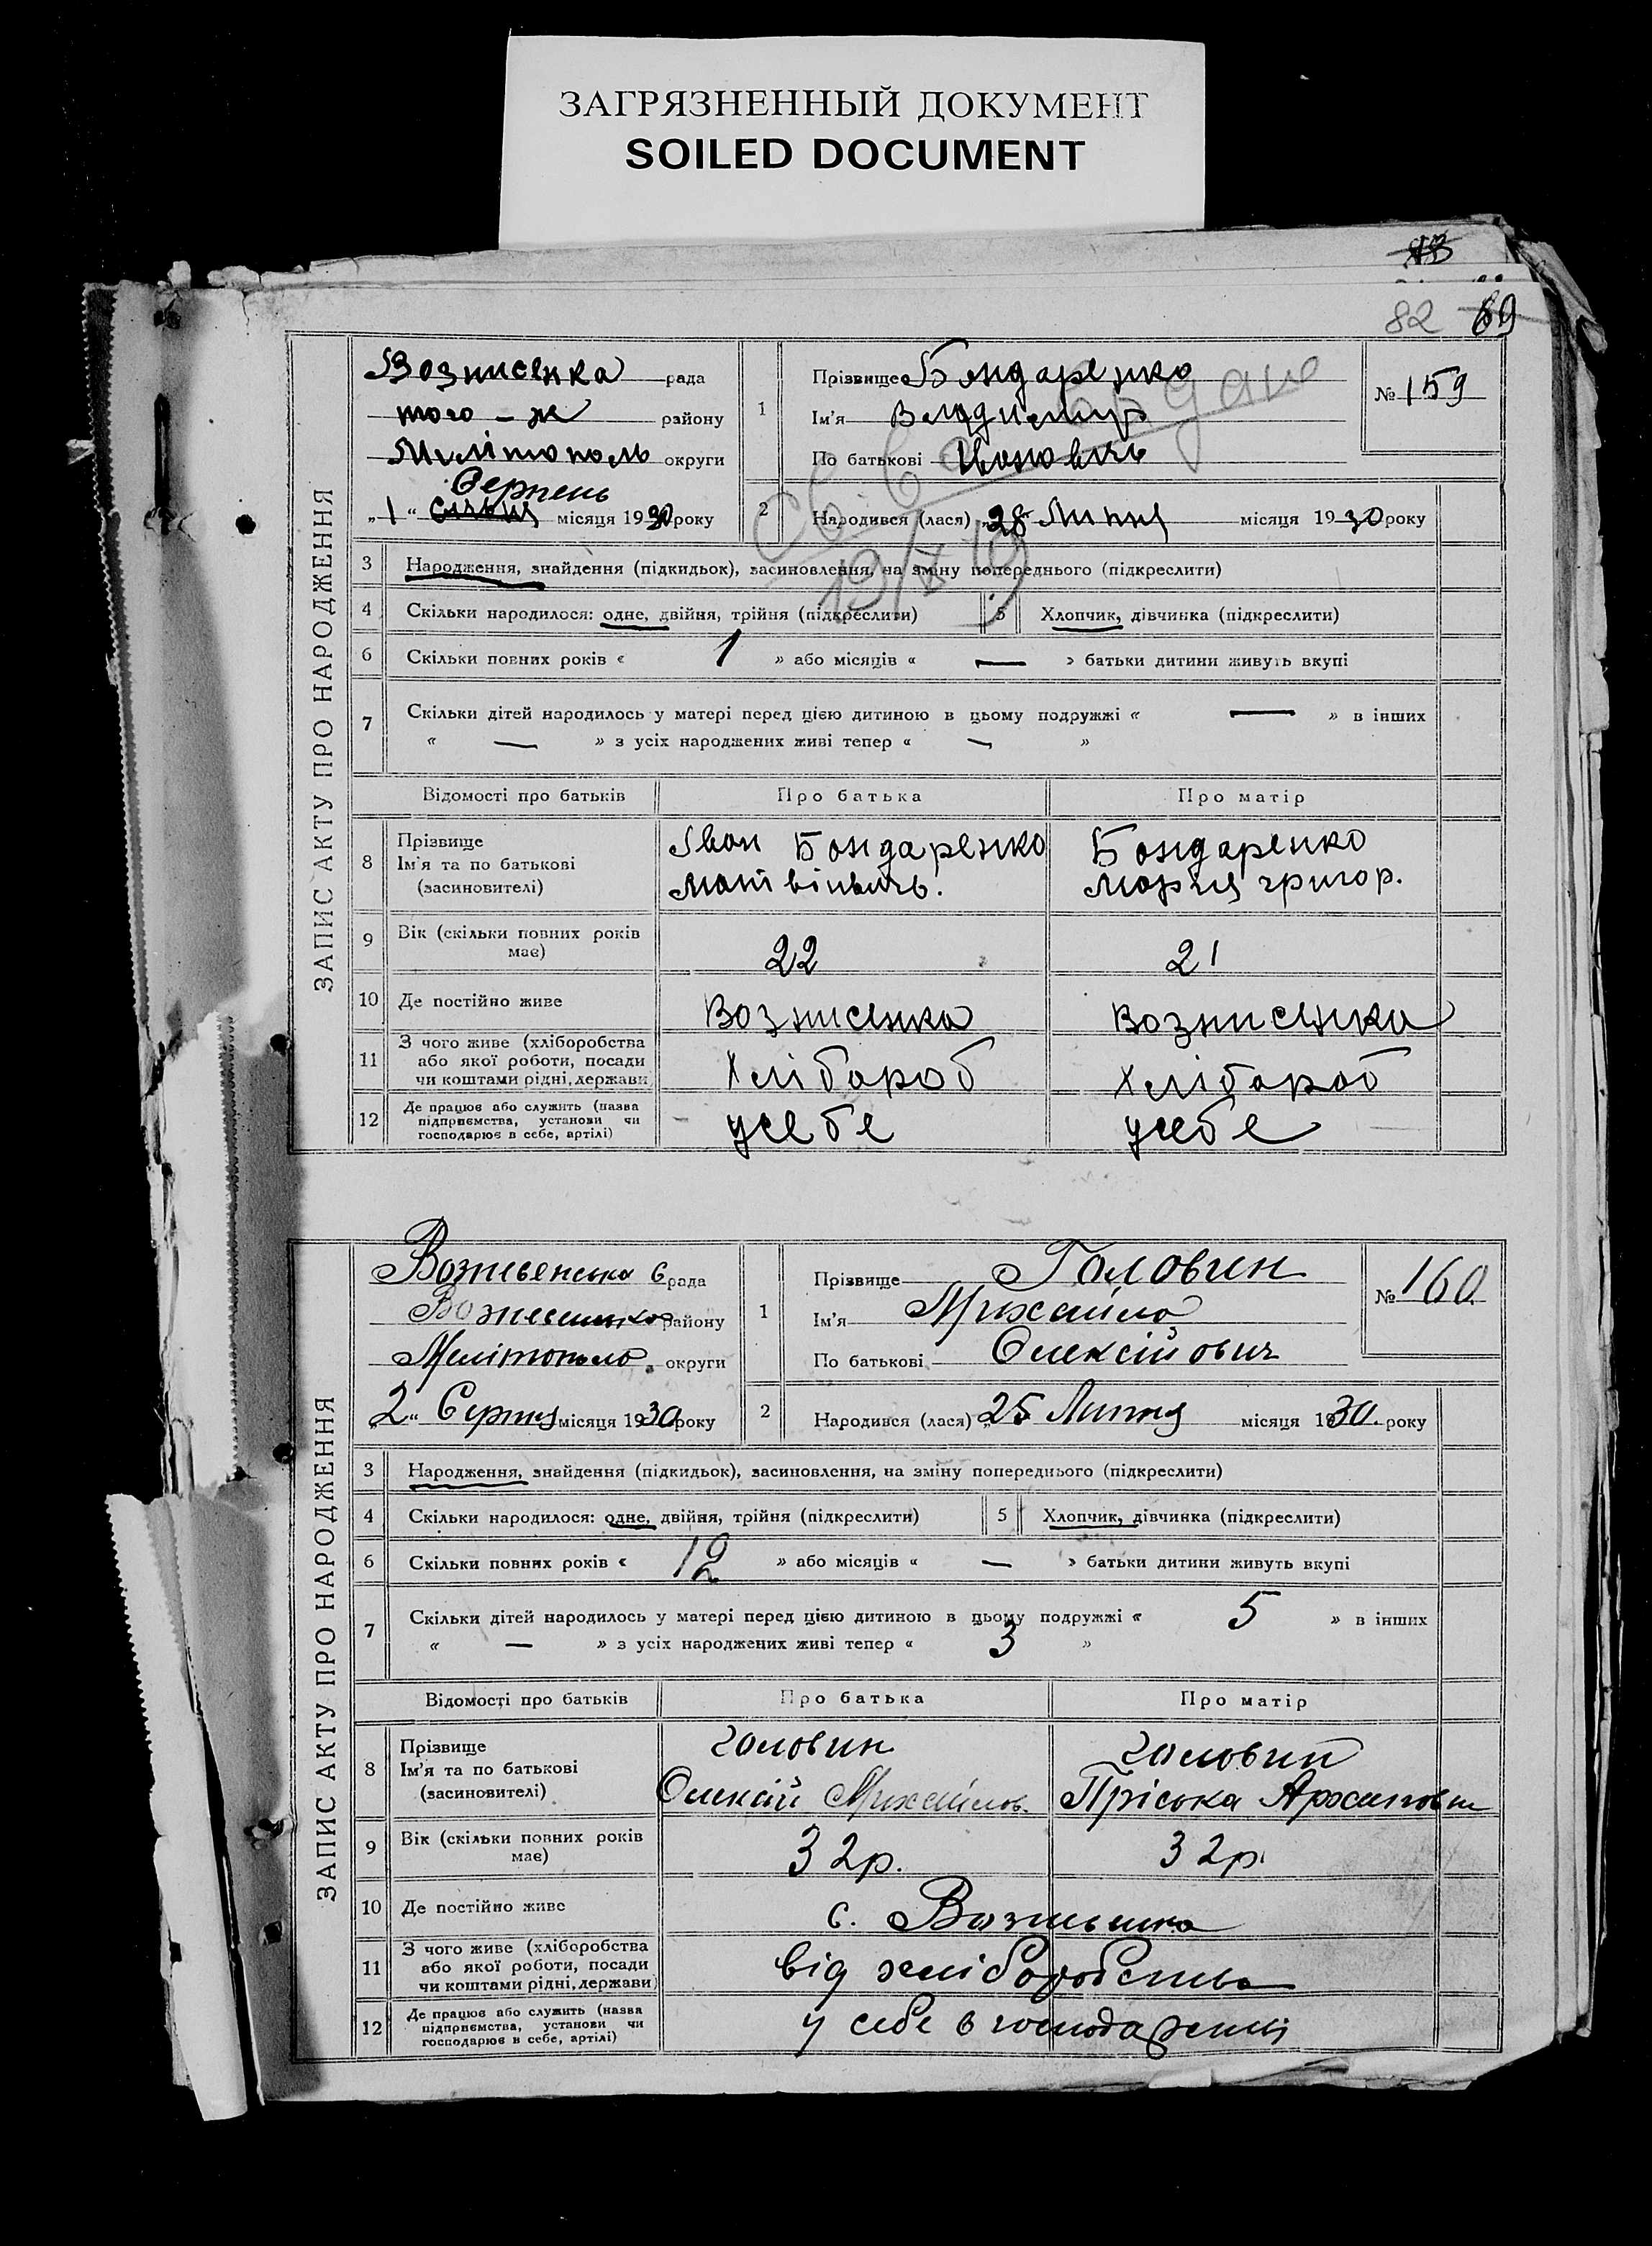 ЗАГРЯЗНЕННЫЙ ДОКУМЕНТ
SOILED DOCUMENT
82 69
ЗАПИС АКТУ ПРО НАРОДЖЕННЯ
Вознисенка рада
того-ж району
Мелітополь округи
Серпень
„1“ місяця 1930 року
1 Прізвище Бондаренко
Ім'я Владимир
По батькові Иванович
№ 159
2 Народився (лася) „28“ Липня місяця 1930 року
19/X
3 Народження, знайдення (підкидьок), засиновлення, на зміну попереднього (підкреслити)
4 Скільки народилося: одне, двійня, трійня (підкреслити) 5 Хлопчик, дівчинка (підкреслити)
6 Скільки повних років « 1 » або місяців « — » батьки дитини живуть вкупі
7 Скільки дітей народилось у матері перед цією дитиною в цьому подружжі « — » в інших
« — » з усіх народжених живі тепер « — »
Відомості про батьків Про батька Про матір
8 Прізвище
Ім'я та по батькові
(засиновителі)
Іван Бондаренко
Матвіевичь.
Бондаренко
Мария григор.
9 Вік (скільки повних років
має)
22 21
10 Де постійно живе Вознисенка Вознисенка
11 З чого живе (хліборобства
або якої роботи, посади
чи коштами рідні, держави)
Хлібороб Хлібороб
12 Де працює або служить (назва
підприємства, установи чи
господарює в себе, артілі)
усебе усебе
ЗАПИС АКТУ ПРО НАРОДЖЕННЯ
Вознесенська с рада
району
округи
„2“ Серпня місяця 1930 року
1 Прізвище Головин
Ім'я Михайло
По батькові Олексійович
№ 160
2 Народився (лася) „25 Липня місяця 1930. року
3 Народження, знайдення (підкидьок), засиновлення, на зміну попереднього (підкреслити)
4 Скільки народилося: одне, двійня, трійня (підкреслити) 5 Хлопчик, дівчинка (підкреслити)
6 Скільки повних років « 12 » або місяців « — » батьки дитини живуть вкупі
7 Скільки дітей народилось у матері перед цією дитиною в цьому подружжі « 5 » в інших
« — » з усіх народжених живі тепер « 3 »
Відомості про батьків Про батька Про матір
8 Прізвище
Ім'я та по батькові
(засиновителі)
Головин
Олексій Михайлов.
Головин
Пріська Архиповна
9 Вік (скільки повних років
має)
32р. 32р.
10 Де постійно живе с. Вознесенка
11 З чого живе (хліборобства
або якої роботи, посади
чи коштами рідні, держави)
від хліборобства
12 Де працює або служить (назва
підприємства, установи чи
господарює в себе, артілі)
у себе в господарстві